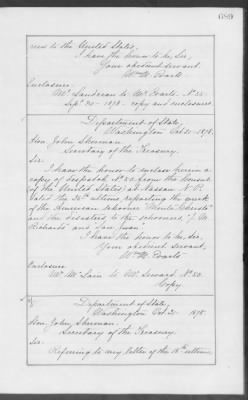 689
rers to the United States,
I have the honor to be, Sir,
Your obedient servant,
Wm M. Evarts
Enclosure
Mr. Landreau to Mr. Evarts. No. 20.
Sept. 30 - 1878. copy and enclosures.
Department of State,
Washington Oct. 2 - 1878.
Hon. John Sherman.
Secretary of the Treasury.
Sir:
I have the honor to enclose herein a
copy of despatch No. 80 from the Consul
of the United States at Nassau N. P.
dated the 20th ultimo, reporting the wreck
of the American schooner
and the disasters to the schooners "J. W.
Richards" and "San Juan."
I have the honor to be, Sir,
Your obedient servant,
Wm M. Evarts
Enclosure
Mr. McLain to Mr. Seward No. 80.
Copy.
Department of State,
Washington Oct. 2 - 1878.
Hon. John Sherman.
Secretary of the Treasury.
Sir:
Referring to my letter of the 18th ultimo,